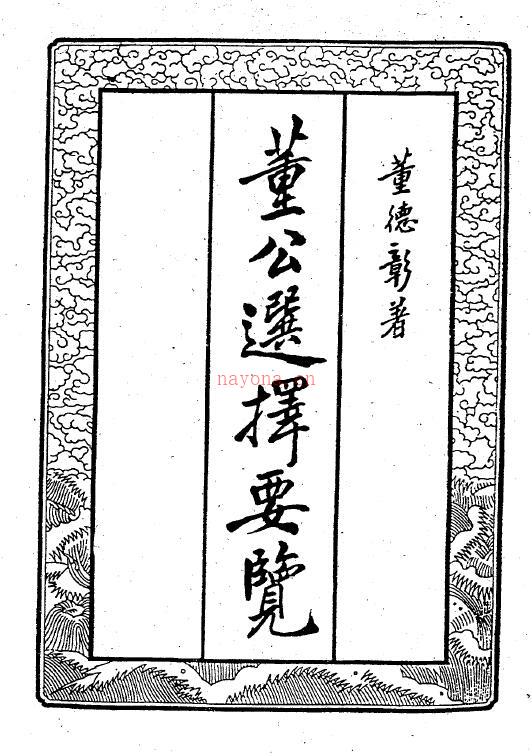 董德彰著
董公選擇要覽
nayona.cn